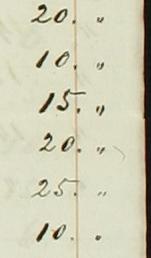 20. "
10. "
15. "
20. "
25. "
10. "